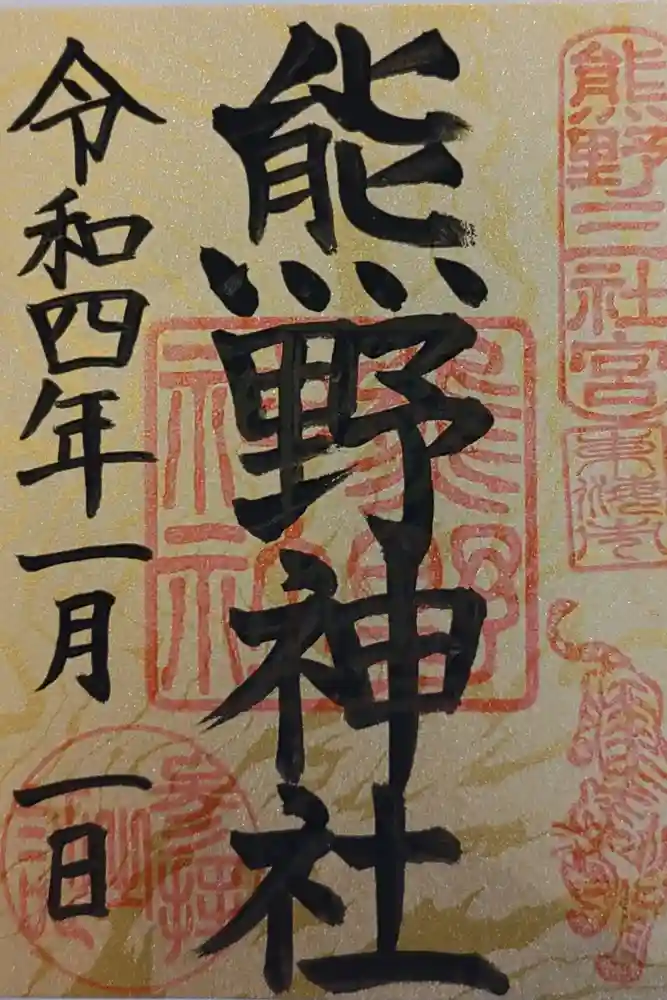 熊野三社宮
熊野神社
令和四年一月一日
熊野神社